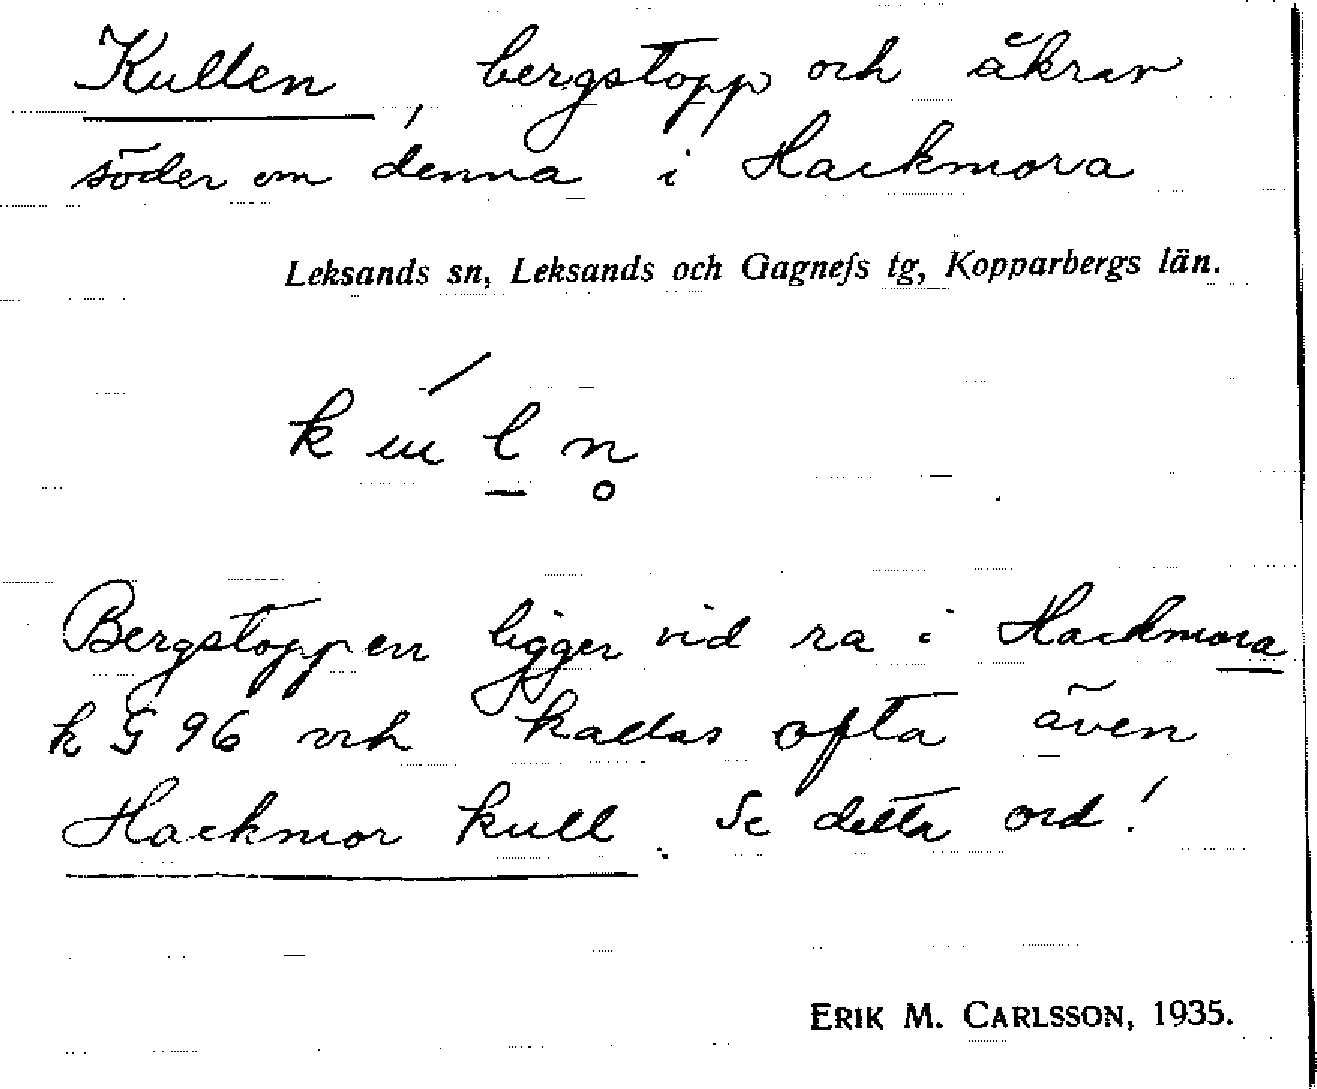 Kullen, bergstopp och åkrar
söder om denna i Hackmora
Leksands sn, Leksands och Gagnefs tg, Kopparbergs län.
Bergstoppen ligger vid ra i Hackmora
k G 96 och kallas ofta även
Hackmor kull. Se detta ord!
ERIK M. CARLSSON, 1935.